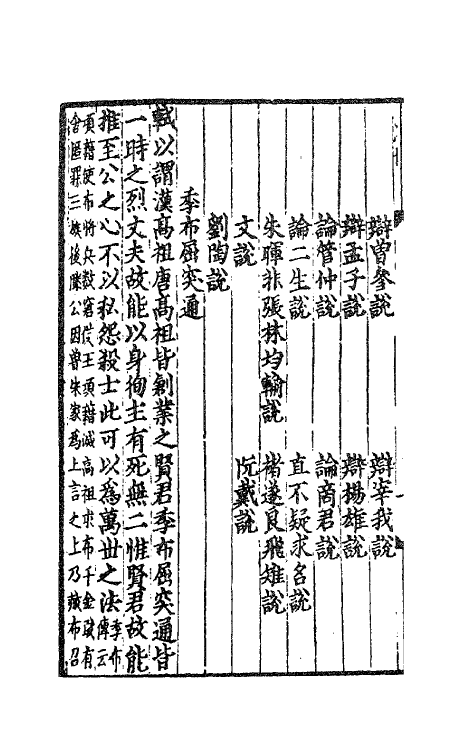 辯曾參說　辯宰我說
辯孟子說　辯楊雄說
論管仲說　論商君說
論二生說　直不疑求名說
朱暉非張林均輸說　褚遂良飛雉說
文說　阮戴說
劉陶說
季布屈突通
軾以謂漢髙祖唐髙祖皆創業之賢君季布屈突通皆
一時之烈丈夫故能以身徇主有死無二惟賢君故能
推至公之心不以私怨殺士此可以為萬世之法季布傳云
項籍使布將兵數窘漢王項籍滅高祖求布千金敢有
舍匿罪三族後滕公因魯朱家為上言之上乃赦布召